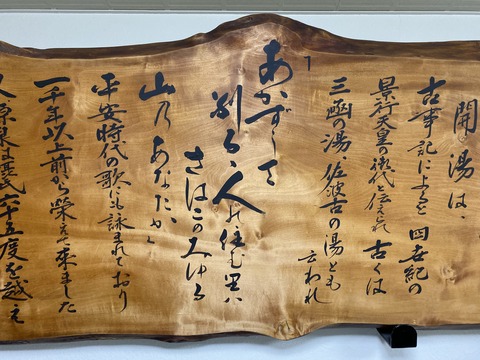 開湯は、
古事記によると四世紀の
景行天皇の御代と伝えられ古くは
三凾の湯、佐波古の湯とも
云われ
あかずして
別るゝ人の住む里は
さはこのみゆる
山のあなたか
平安時代の歌にも詠まれており
一千年以上前から栄えて来ました
源泉は摂氏六十五度を越え